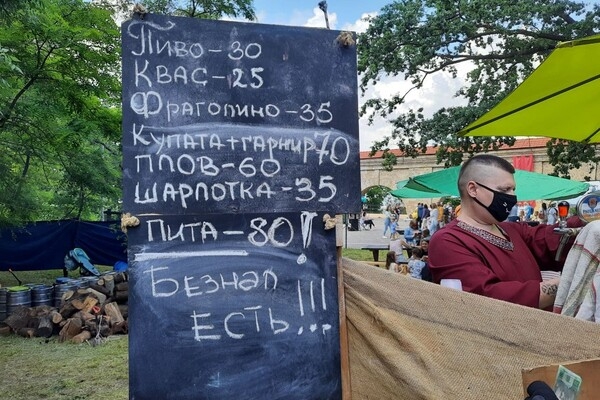 Пиво-30
Квас-25
Фраголино-35
Купата+гарнир 70
Плов-60
Шарлотка-35
Пита-80!
Безнал
есть!!!